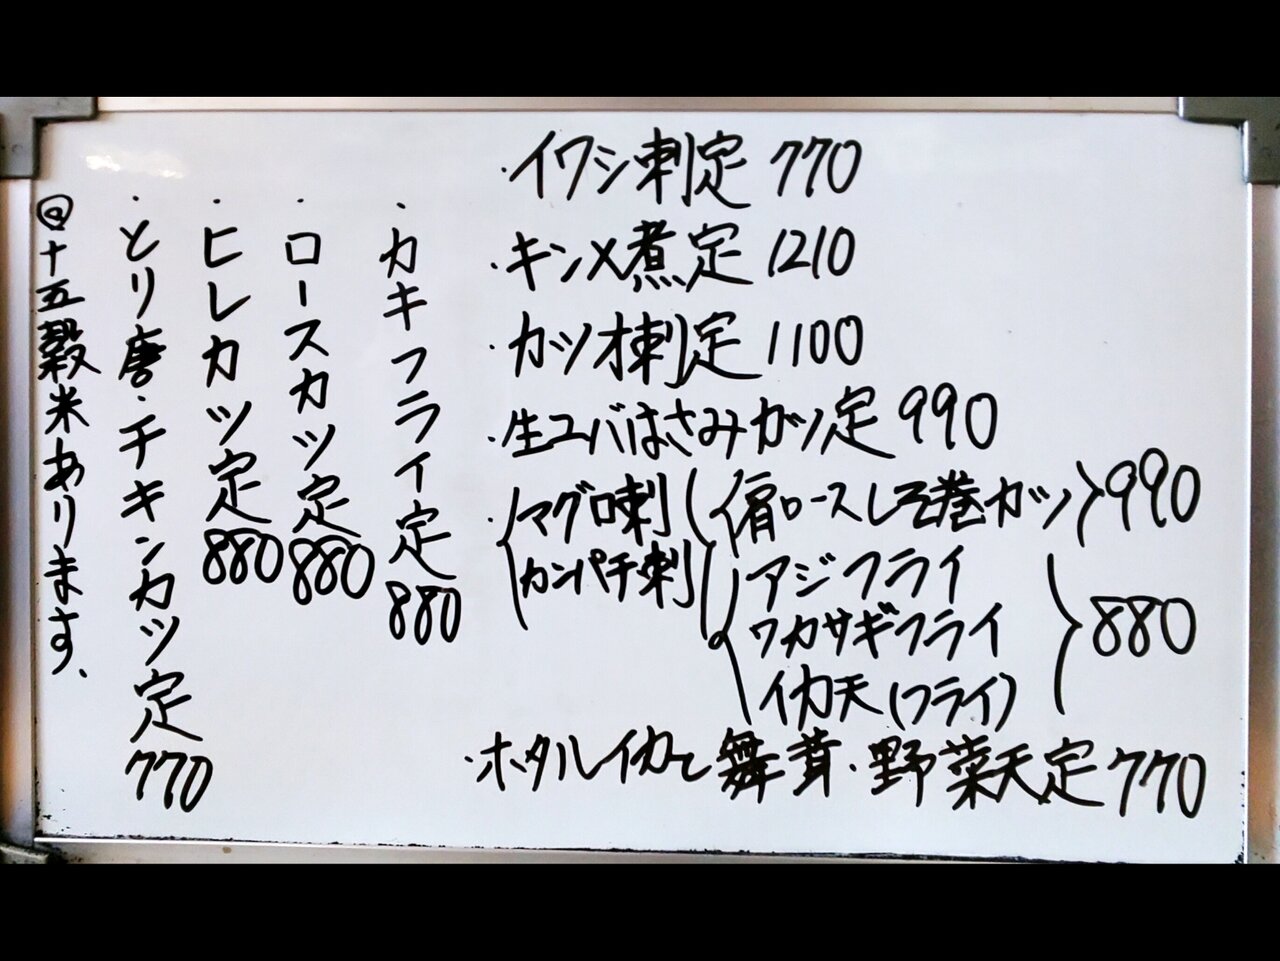 ・イワシ刺定 770
・キンメ煮定 1210
・カツオ刺定 1100
・生ユバはさみカツ定 990
・マグロ刺
カンパチ刺
肩ロースしそ巻カツ 990
アジフライ
ワカサギフライ
イカ天(フライ)
880
・ホタルイカと舞茸・野菜天定 770
・カキフライ定 880
・ロースカツ定 880
・ヒレカツ定 880
・とり唐・チキンカツ定 770
◎十五穀米あります、